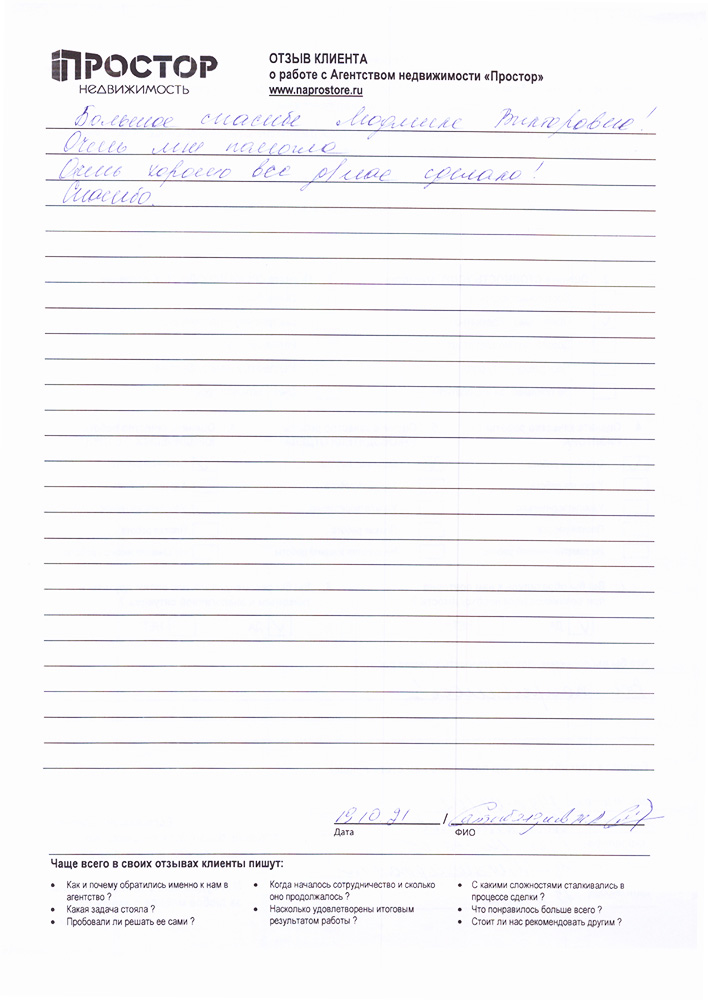 ПРОСТОР
НЕДВИЖИМОСТЬ
ОТЗЫВ КЛИЕНТА
о работе с Агентством недвижимости «Простор»
www.naprostore.ru
Большое спасибо Людмиле Викторовне!
Очень мне памогла
Очень хорошо все сделала!
Спасибо.
19.10.21 /
Дата
ФИО
Чаще всего в своих отзывах клиенты пишут:
• Как и почему обратились именно к нам в агентство ?
• Какая задача стояла ?
• Пробовали ли решать ее сами ?
• Когда началось сотрудничество и сколько оно продолжалось ?
• Насколько удовлетворены итоговым результатом работы ?
• С какими сложностями сталкивались в процессе сделки ?
• Что понравилось больше всего ?
• Стоит ли нас рекомендовать другим ?